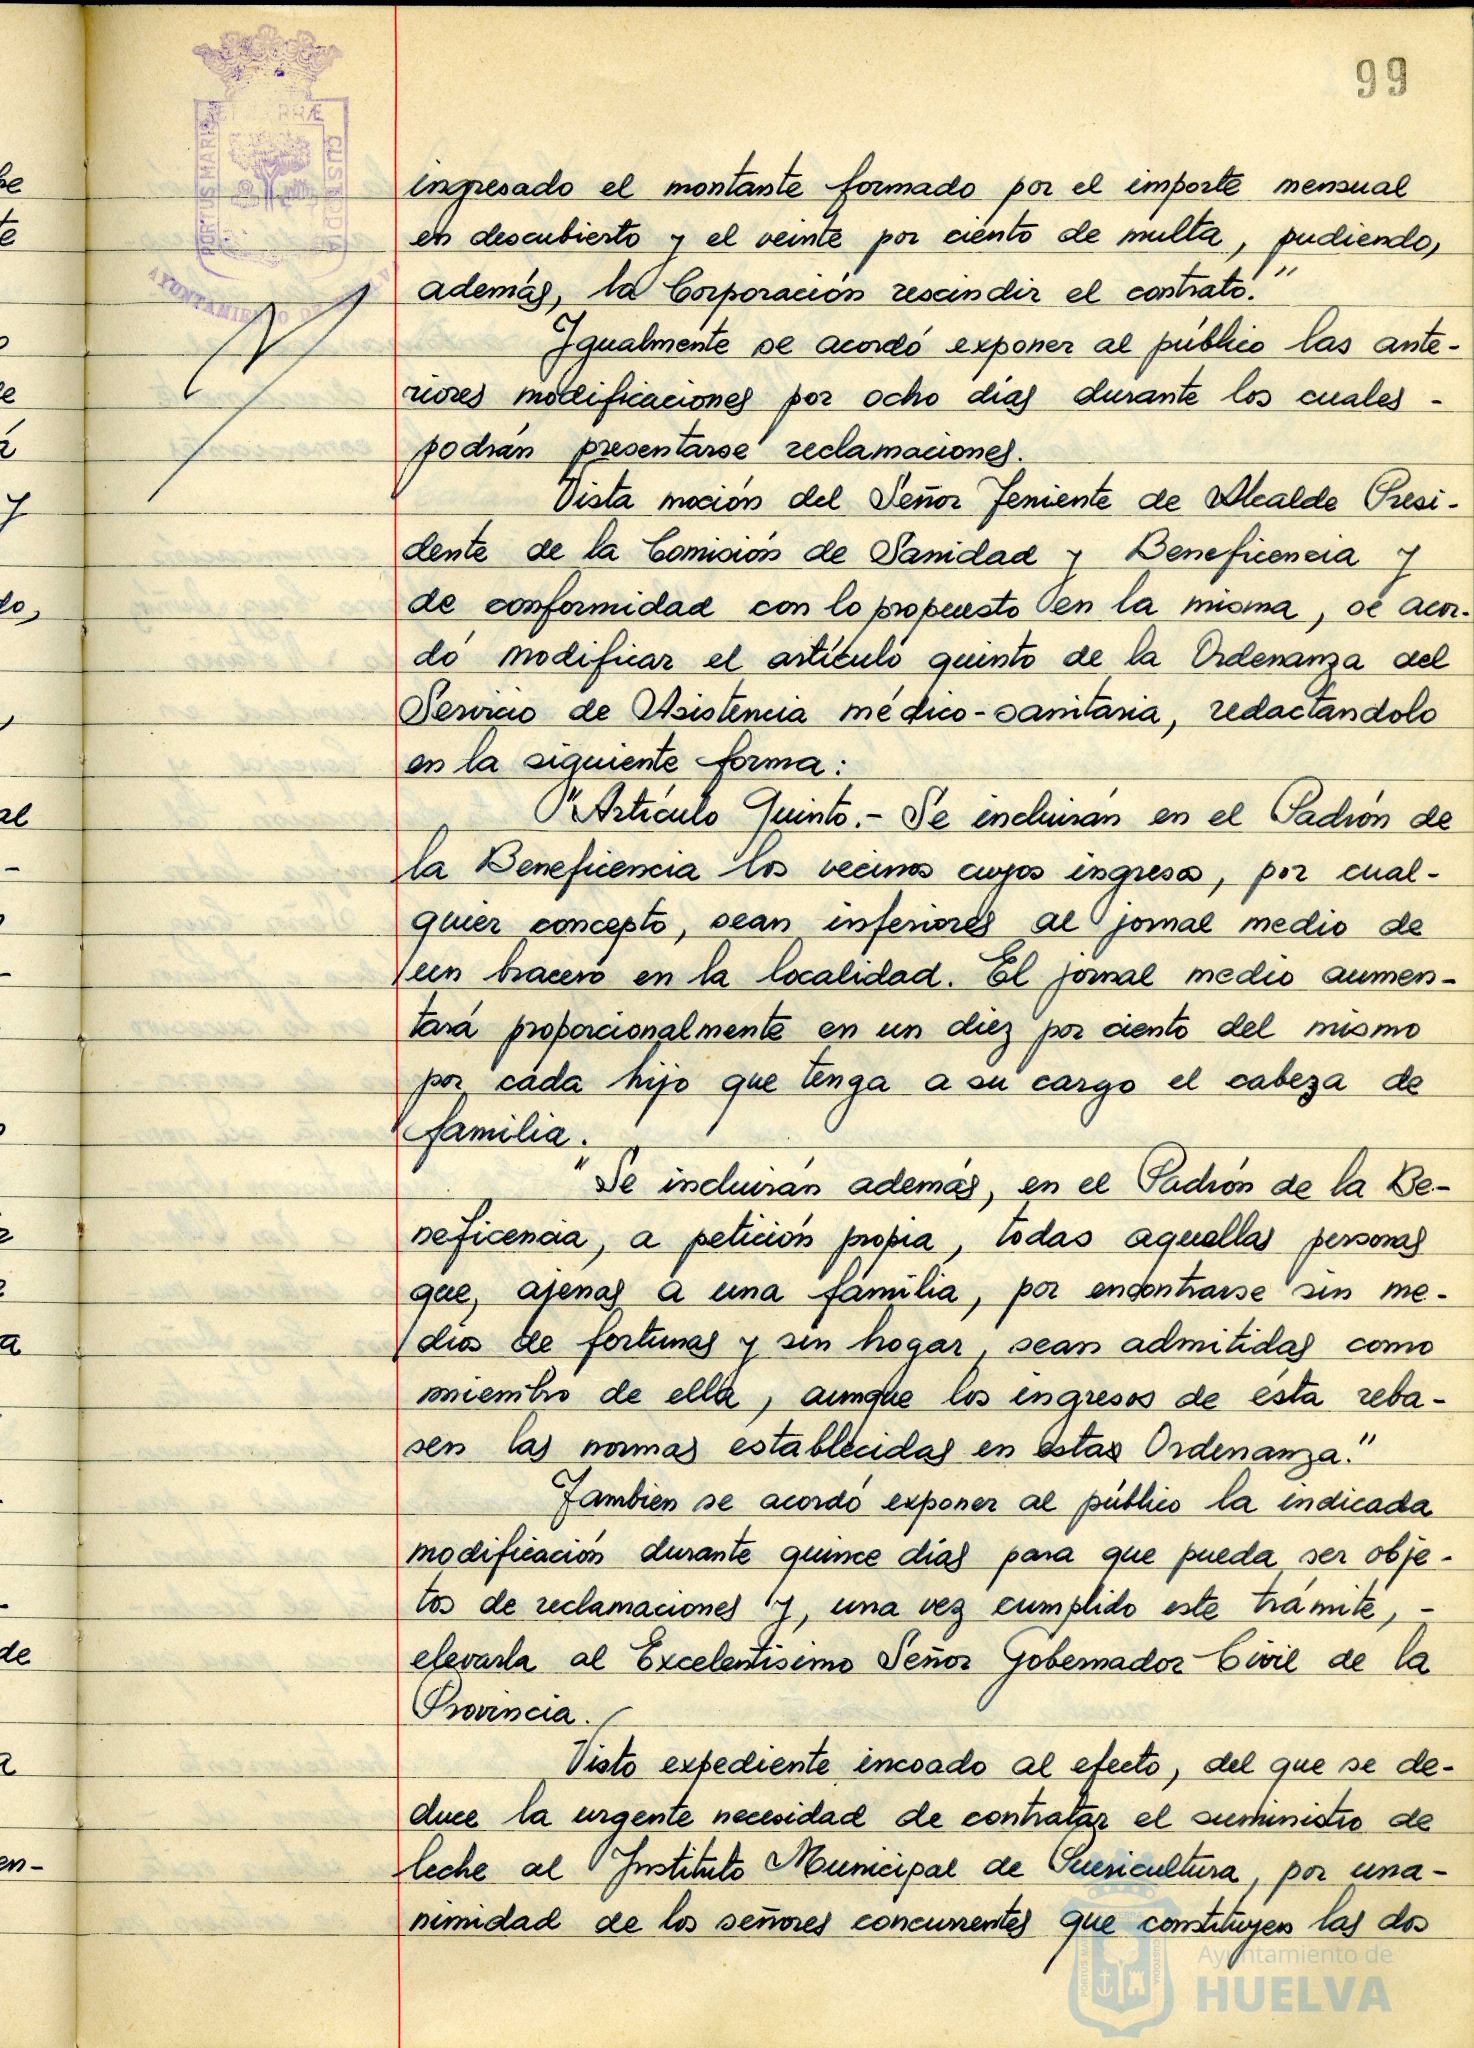 99
PORTUS MARIS ET TERRÆ CUSTODIA
AYUNTAMIENTO DE HUELVA
ingresado el montante formado por el importe mensual
en descubierto y el veinte por ciento de multa, pudiendo,
además, la Corporación rescindir el contrato."
Igualmente se acordó exponer al público las ante-
riores modificaciones por ocho días durante los cuales -
podrán presentarse reclamaciones.
Vista moción del Señor Teniente de Alcalde Presi-
dente de la Comisión de Sanidad y Beneficencia y
de conformidad con lo propuesto en la misma, se acor-
dó modificar el artículo quinto de la Ordenanza del
Servicio de Asistencia médico-sanitaria, redactandolo
en la siguiente forma:
"Artículo Quinto.- Se incluirán en el Padrón de
la Beneficencia los vecinos cuyos ingresos, por cual-
quier concepto, sean inferiores al jornal medio de
un bracero en la localidad. El jornal medio aumen-
tará proporcionalmente en un diez por ciento del mismo
por cada hijo que tenga a su cargo el cabeza de
familia.
"Se incluirán además, en el Padrón de la Be-
neficencia, a petición propia, todas aquellas personas
que, ajenas a una familia, por encontrarse sin me-
dios de fortunas y sin hogar, sean admitidas como
miembro de ella, aunque los ingresos de ésta reba-
sen las normas establecidas en estas Ordenanza."
Tambien se acordó exponer al público la indicada
modificación durante quince días para que pueda ser obje-
tos de reclamaciones y, una vez cumplido este trámite, -
elevarla al Excelentísimo Señor Gobernador Civil de la
Provincia.
Visto expediente incoado al efecto, del que se de-
duce la urgente necesidad de contratar el suministro de
leche al Instituto Municipal de Puericultura, por una-
nimidad de los señores concurrentes que constituyen las dos
Ayuntamiento de
HUELVA